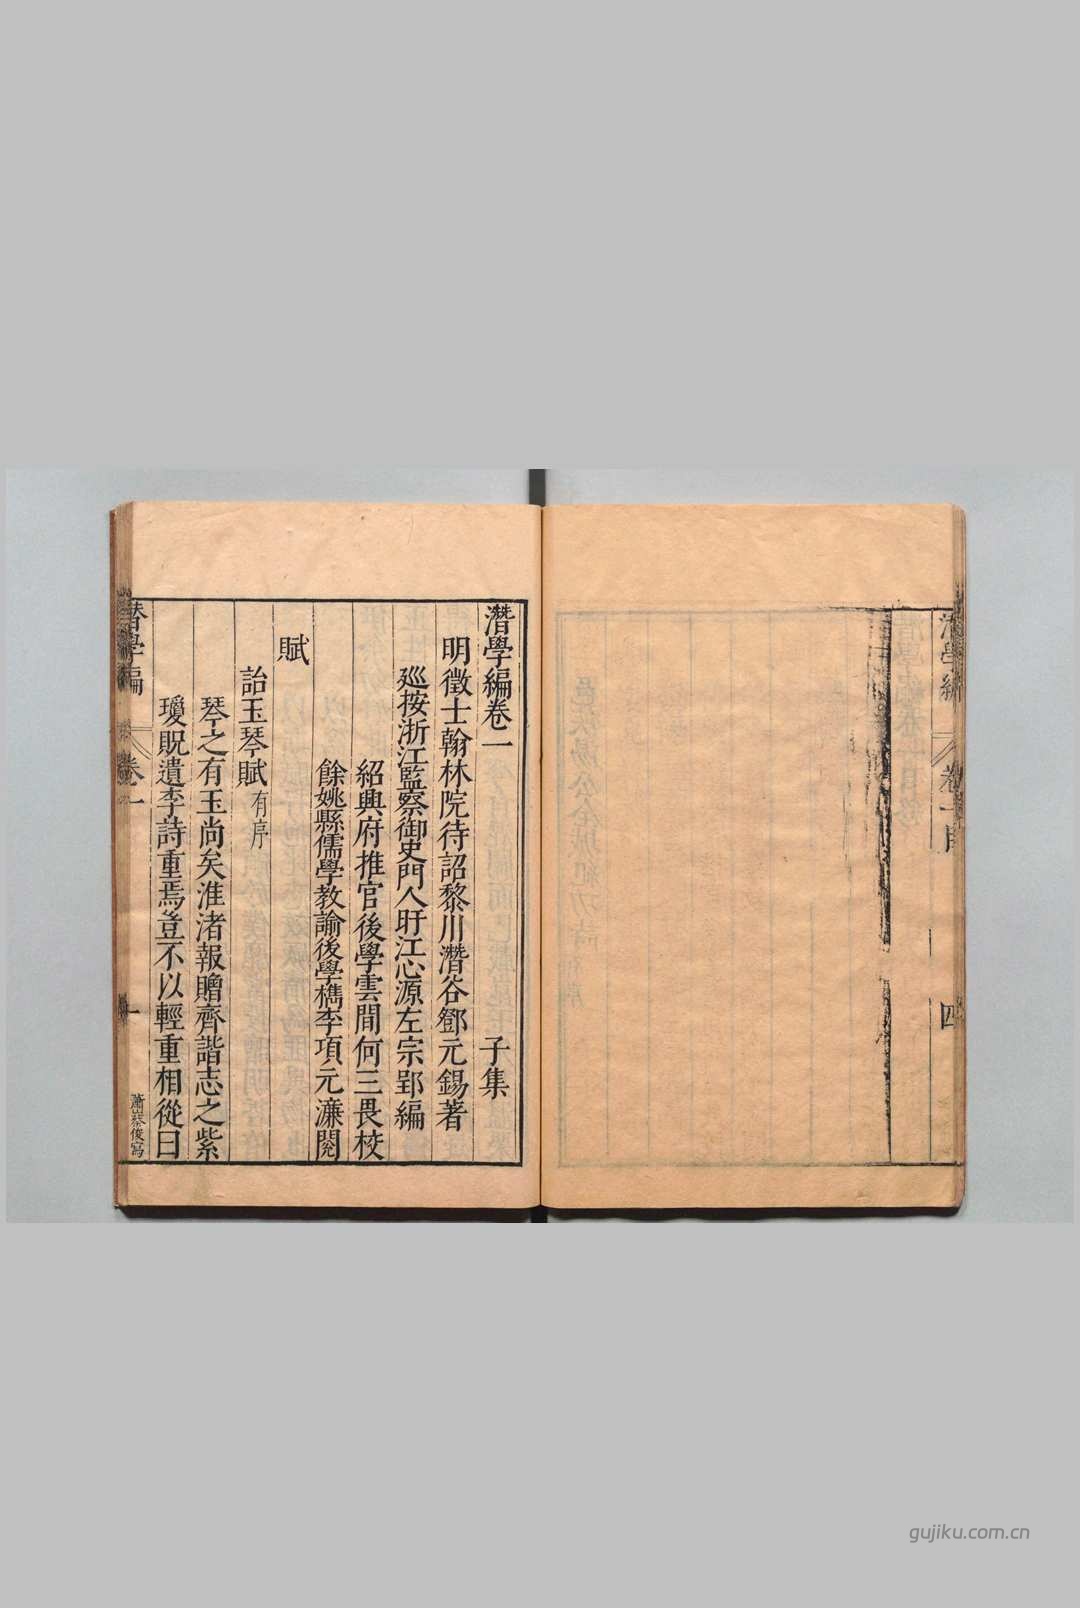 卷一目
四
潛學編卷一
子集
明徵士翰林院待詔黎川潛谷鄧元錫著
廵按浙江監察御史門人旴江心源左宗郢編
紹興府推官後學雲間何三畏校
餘姚縣儒學教諭後學檇李項元濂閱
賦
詒玉琴賦有序
琴之有玉尚矣淮渚報贈齊諧志之紫
瓊貺遺李詩重焉豈不以輕重相從曰
潛學編
卷一
一
蕭山蔡俊寫
gujiku.com.cn